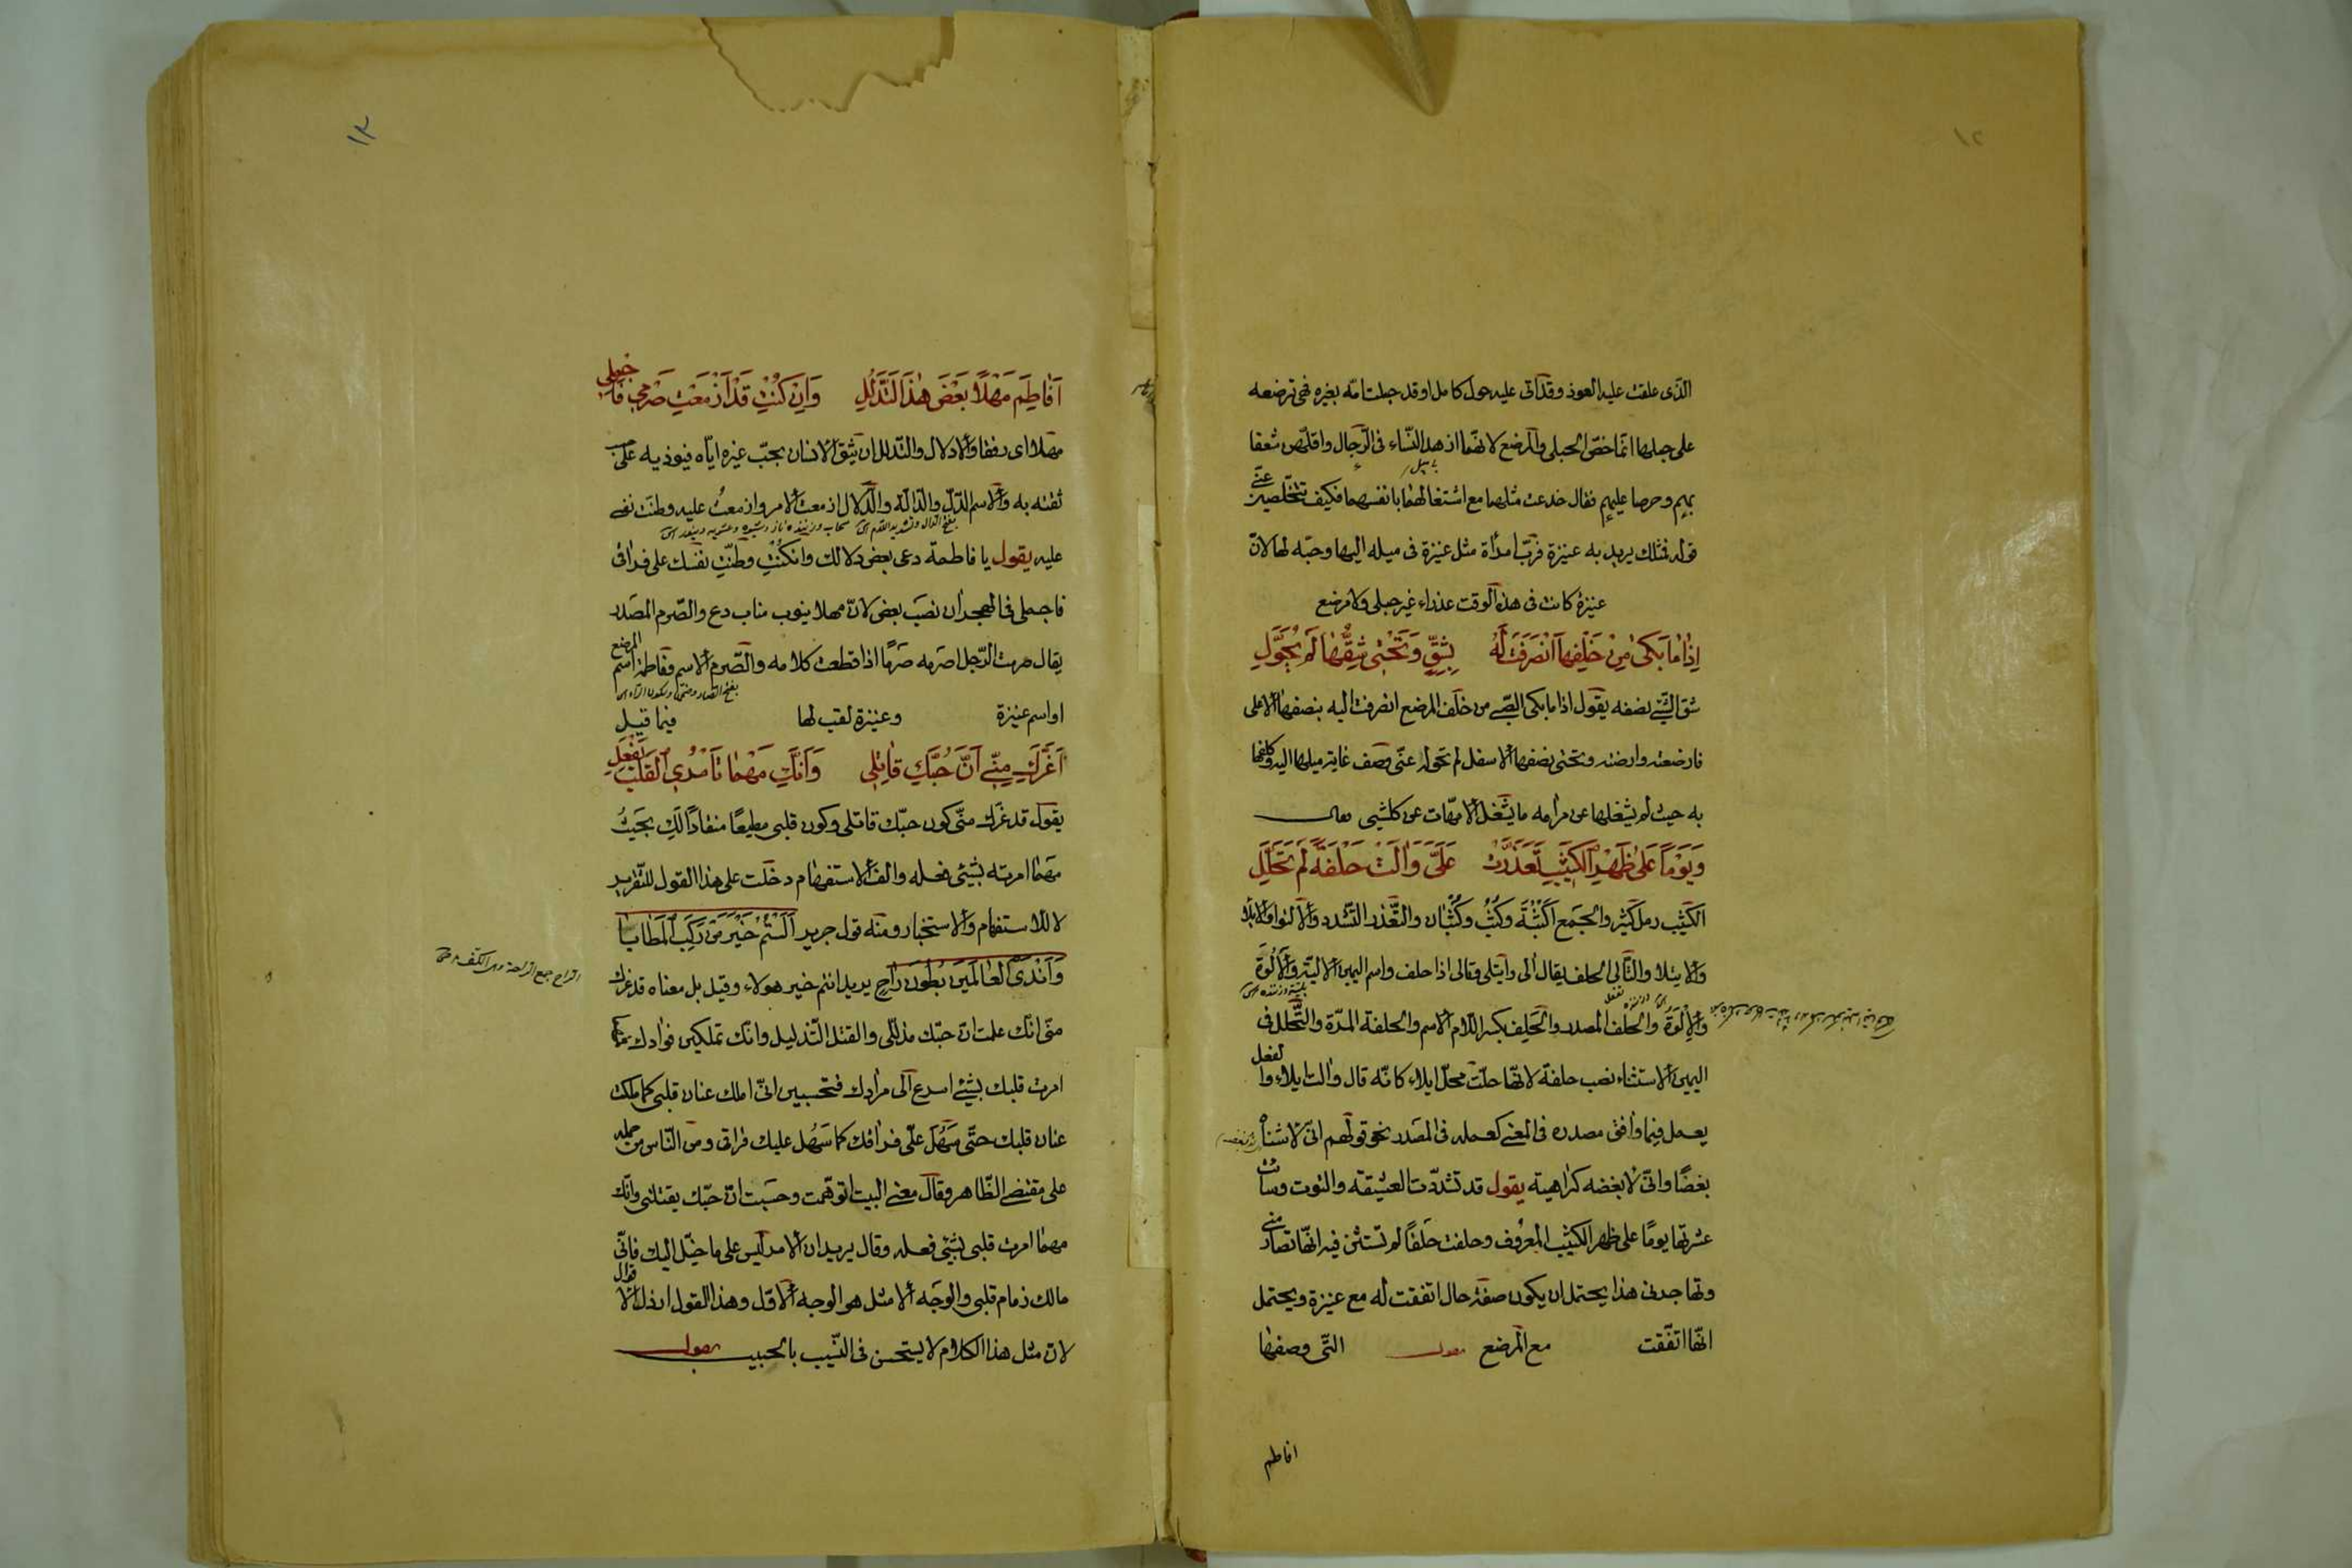 ١٢
الذى علقت عليه العوذ وقد اتى عليه حول كامل او قد حبلت امه بغيره فهى ترضعه
على حبلها انما خص الحبلى والمرضع لانهما ازهد النساء فى الرجال واقلهن شغفا
بهم وحرصا عليهم فقال خدعت مثلهما مع اشتغالهما بانفسهما فكيف تتخلصين عنى
قوله فمثلك يريد به عنيزة فرب امرأة مثل عنيزة فى ميله اليها وحبه لها لان
عنيزة كانت فى هذا الوقت عذراء غير حبلى ولا مرضع
اِذٰا مٰا بَكىٰ مِنْ خَلْفِهٰا اَنْصَرَفَتْ لَهُ بِشِقٍّ وَتَحْتِى شِقُّهٰا لَمْ يُحَوَّلِ
شق الشئ نصفه يقول اذا ما بكى الصبى من خلف المرضع انصرفت اليه بنصفها الاعلى
فارضعته وارضته وتحتى نصفها الاسفل لم تحوله عنى وصف غاية ميلها اليه وكلفها
به حيث لم يشغلها عن مرامه ما يشغل الامهات عن كلشيى
وَيَوْمًا عَلىٰ ظَهْرِ الْكَثِيبِ تَعَذَّرَتْ عَلَىَّ وَاٰلَتْ حَلْفَةً لَمْ تَحَلَّلِ
الكثيب رمل كثير والجمع اكثبة وكثب وكثبان والتعذر التشدد والالتواء والايلاء
والايتلاء والتألى الحلف يقال الى وايتلى وتالى اذا حلف واسم اليمين الالية والالوة
والالوة والحلف المصدر والحلف بكسر اللام الاسم والحلفة المرة والتحلل فى
اليمين الاستثناء نصب حلفة لانها حلت محل ايلاء كانه قال والت ايلاء والفعل
يعمل فيما وافق مصدره فى المعنى كعمله فى المصدر نحو قولهم انى لاشنأه
بغضًا وانى لابغضه كراهية يقول قد تشددت العشيقة والتوت وساءت
عشرتها يومًا على ظهر الكثيب المعروف وحلفت حلفًا لم تستثن فيه انها تصارمنى
وتهاجرنى هذا يحتمل ان يكون صفة حال اتفقت له مع عنيزة ويحتمل
انها اتفقت مع المرضع التى وصفها
افاطم
١٣
اَفٰاطِمَ مَهْلًا بَعْضَ هٰذَا التَّدَلُّلِ وَاِنْ كُنْتِ قَدْ اَزْمَعْتِ صَرْمِى فَاَجْمِلِى
مهلا اى رفقا والادلال والتدلل ان يثق الانسان بحب غيره اياه فيوذيه على حسب
ثقته به والاسم الدل والدالة والدلال ازمعت الامر وازمعت عليه وطنت نفسى
عليه يقول يا فاطمة دعى بعض دلالك وان كنت وطنت نفسك على فراقى
فاجملى فى الهجران نصب بعض لان مهلا ينوب مناب دع والصرم المصدر
يقال صرمت الرجل اصرمه صرمًا اذا قطعت كلامه والصرم الاسم وفاطمة اسم المرضع
او اسم عنيزة وعنيزة لقب لها فيما قيل
اَغَرَّكِ مِنِّى اَنَّ حُبَّكِ قٰاتِلِى وَاَنَّكِ مَهْمٰا تَأْمُرِى الْقَلْبَ يَفْعَلِ
يقول قد غرك منى كون حبك قاتلى وكون قلبى مطيعًا منقادًا لك بحيث
مهما امرته بشيئ فعله والف الاستفهام دخلت على هذا القول للتقرير
لا للاستفهام والاستخبار ومنه قول جرير اَلَسْتُمْ خَيْرَ مَنْ رَكِبَ الْمَطٰايٰا
وَاَنْدَى الْعٰالَمِينَ بُطُونَ رٰاحِ يريد انتم خير هولاء وقيل بل معناه قد غرك
منى انك علمت ان حبك مذللى والقتل التذليل وانك تملكين فوادك فمهما
امرت قلبك بشيئ اسرع الى مرادك فتحسبين انى املك عنان قلبى كما ملكت
عنان قلبك حتى سهل على فراقك كما سهل عليك فراقى ومن الناس من حمله
على مقتضى الظاهر وقال معنى البيت اتوهمت وحسبت ان حبك يقتلنى وانك
مهما امرت قلبى بشيئ فعله وقال يريد ان الامر ليس على ما خيل اليك فانى
مالك زمام قلبى والوجه الامثل هو الوجه الاول وهذا القول ارذل الاقوال
لان مثل هذا الكلام لا يستحسن فى النسيب بالحبيب